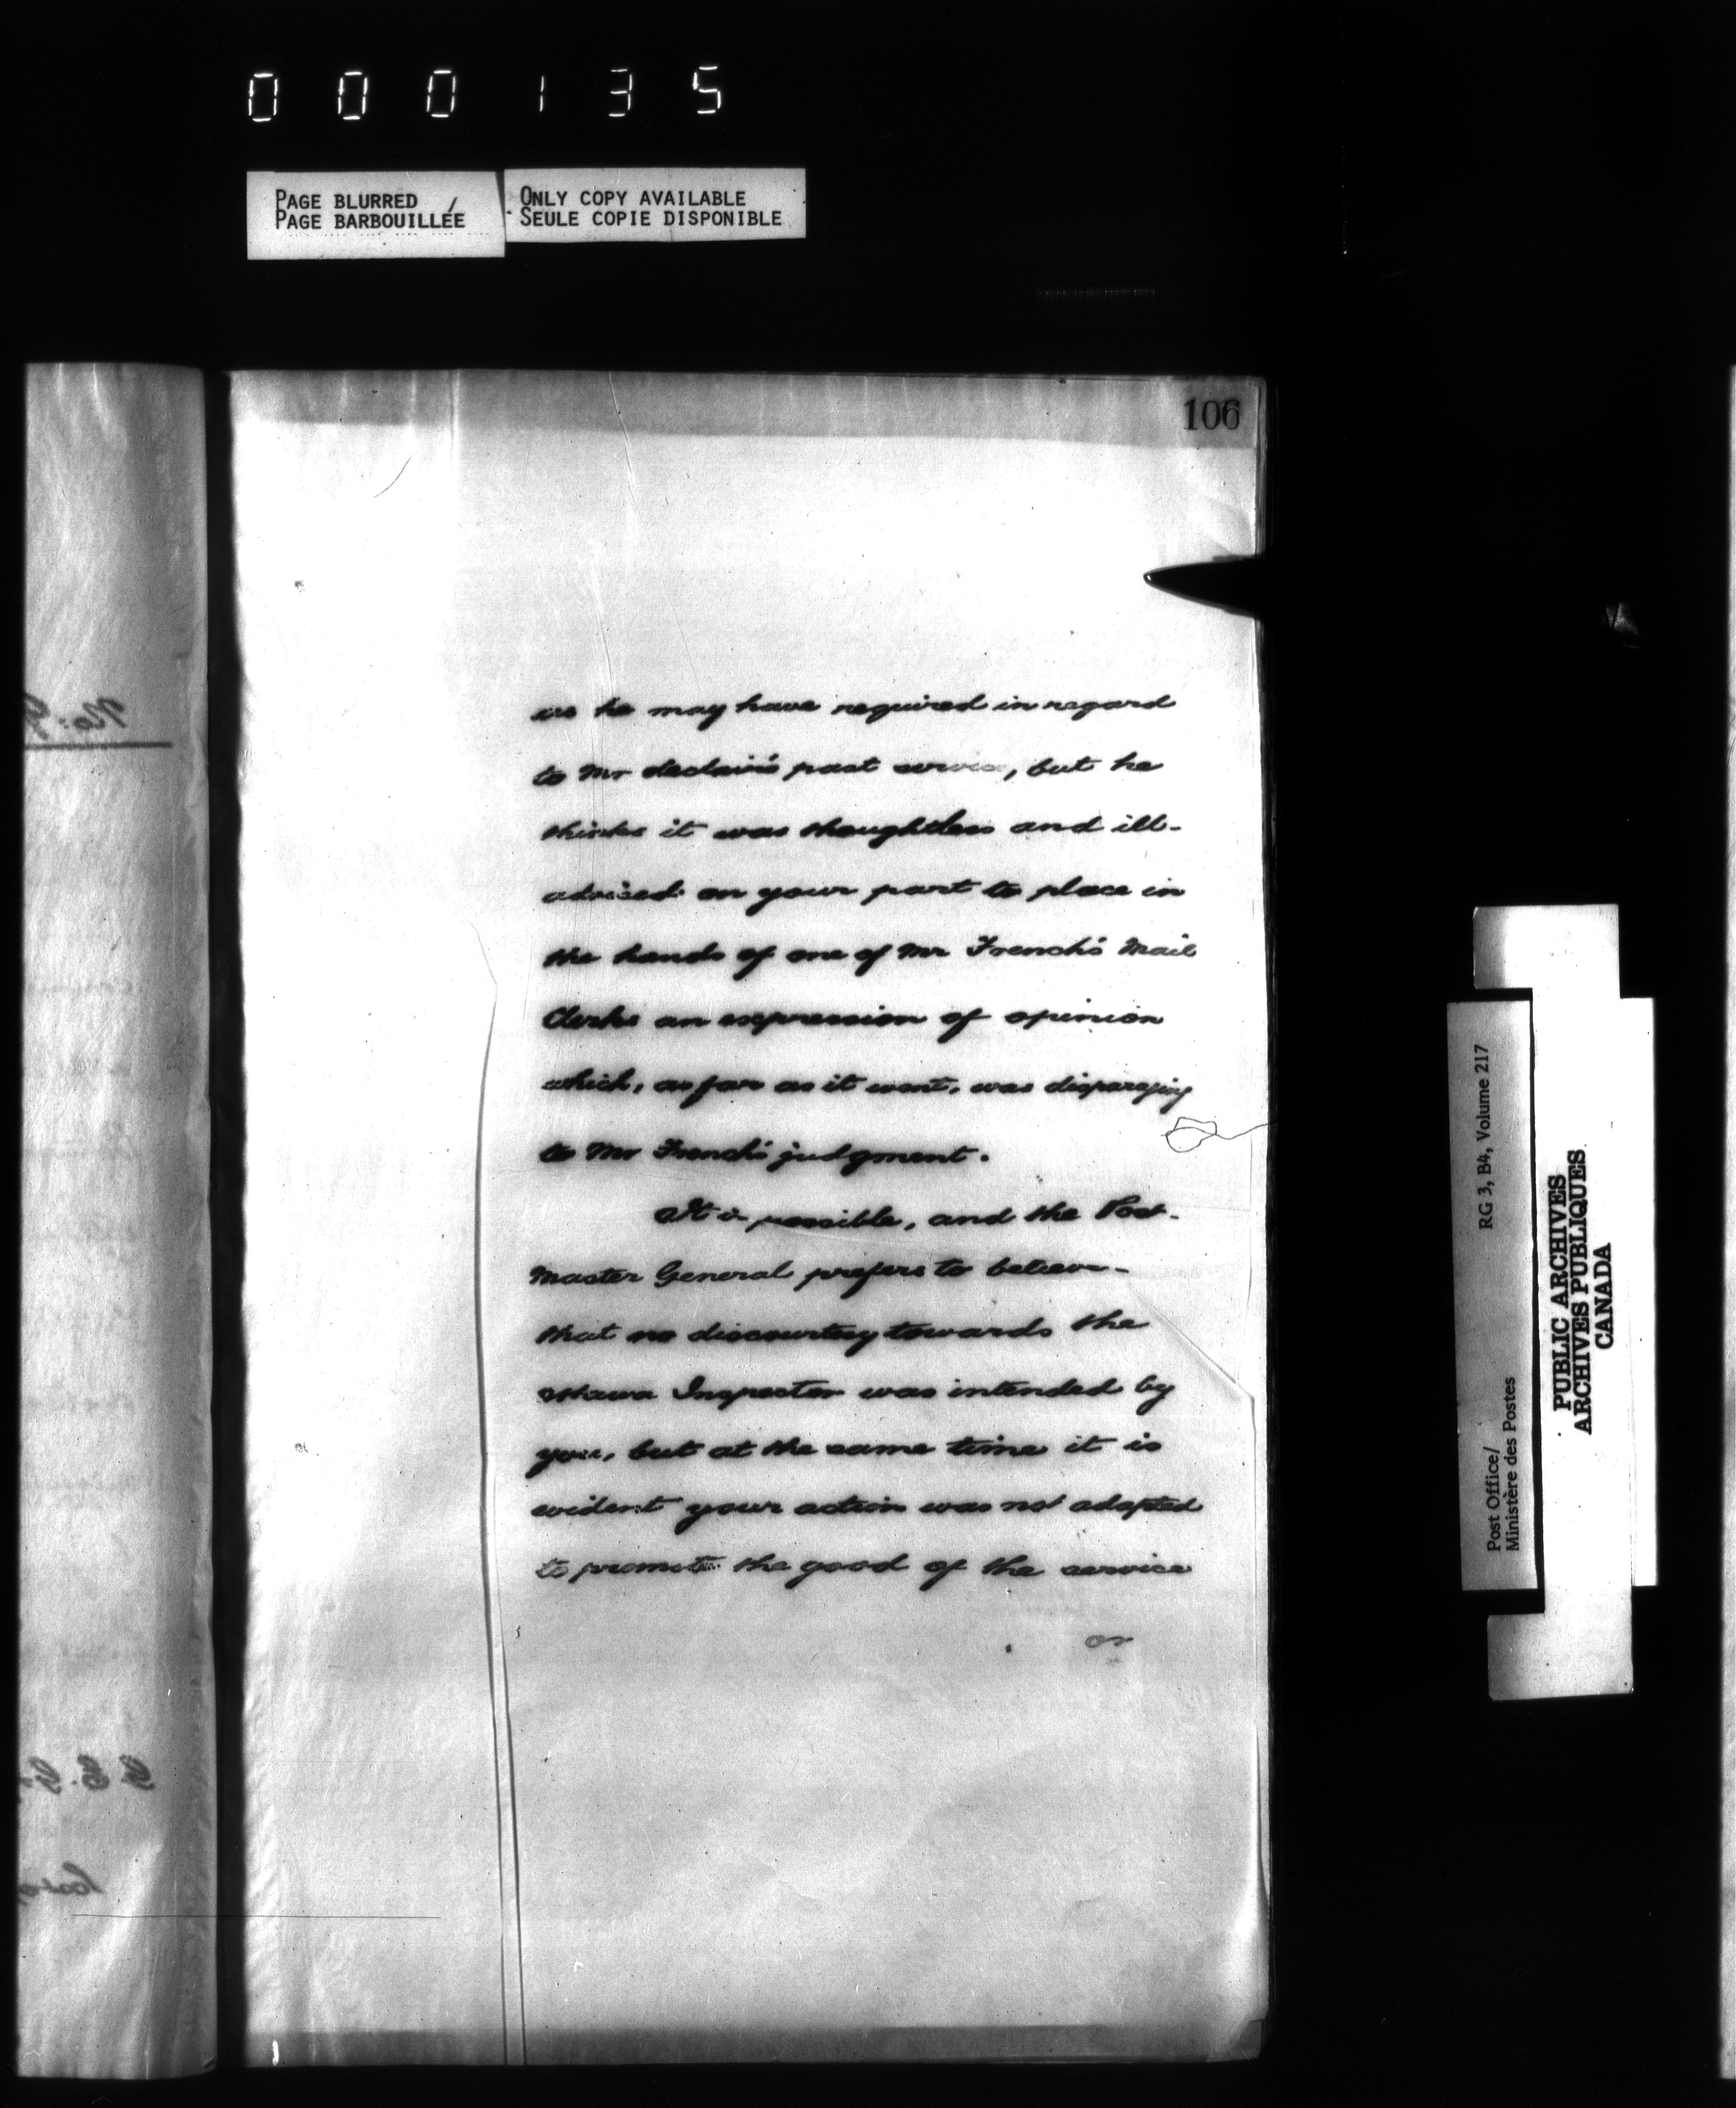 000135
PAGE BLURRED
PAGE BARBOUILLÉE
ONLY COPY AVAILABLE
SEULE COPIE DISPONIBLE
106
as he may have required in regard
to Mr Leclair's past service, but he
thinks it was thoughtless and ill-
advised on your part to place in
the hands of one of Mr French's Mail
Clerks an expression of opinion
which, as far as it went, was disparaging
to Mr French's judgment.
It is possible, and the Post-
master General prefers to believe
that no discourtesy towards the
Ottawa Inspector was intended by
you, but at the same time it is
evident your action was not adapted
to promote the good of the service
or
RG 3, B4, Volume 217
Post Office/
Ministère des Postes
PUBLIC ARCHIVES
ARCHIVES PUBLIQUES
CANADA